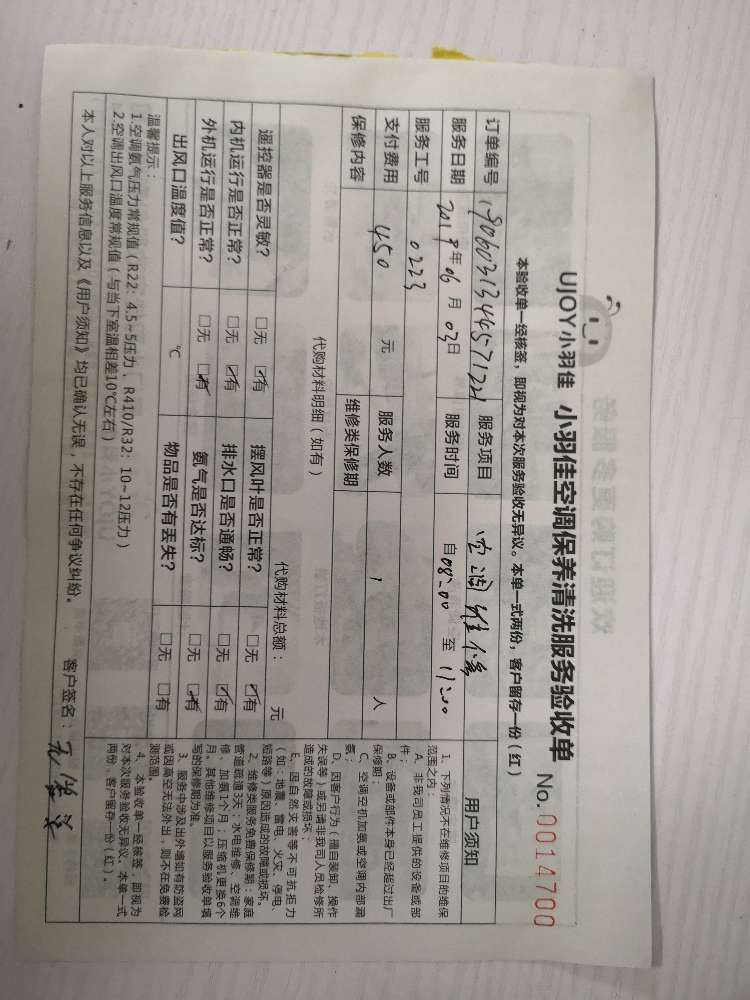 UJOY小羽佳 小羽佳空调保养清洗服务验收单 No.0014700
本验收单一经核签，即视为对本次服务验收无异议。本单一式两份，客户留存一份（红）
订单编号 服务项目 空调维修
服务日期 2019年06月03日 服务时间 自08:00至11:00
服务工号 0223
支付费用 450元 服务人数 1人
保修内容 维修类保修期
代购材料明细（如有）
代购材料总额： 元
遥控器是否灵敏？ □无 ☑有 摆风叶是否正常？ □无 ☑有
内机运行是否正常？ □无 ☑有 排水口是否通畅？ □无 ☑有
外机运行是否正常？ □无 ☑有 氨气是否达标？ □无 ☑有
出风口温度值？ ℃ 物品是否有丢失？ □无 □有
温馨提示：
1.空调氨气压力常规值（R22：4.5~5压力，R410/R32：10~12压力）
2.空调出风口温度常规值（与当下室温相差10℃左右）
本人对以上服务信息以及《用户须知》均已确认无误，不存在任何争议纠纷。 客户签名：
用户须知
1、下列情况不在维修项目的维保
范围之内：
A、非我司员工提供的设备或部
件；
B、设备或部件本身已经超过出厂
保修期；
C、空调空机加氨或空调内部漏
氨；
D、因客户行为（擅自装卸、操作
失误等）或另请非我司人员检修所
造成的故障或损坏
E、因自然灾害等不可抗拒力
（如：地震、雷电、火灾、停电、
短路等）原因造成的故障或损坏。
2、维修类服务免费保修期：家庭
管道疏通3天；水电维修、空调维
修、加氨1个月；压缩机更换6个
月。其他维修项目以服务验收单填
写的保修期为准。
3、服务中涉及出外墙如有防盗网
或因高空无法外出，则不在免费检
测范围。
4、本验收单一经核签，即视为
对本次服务验收无异议。本单一式
两份，客户留存一份（红）。